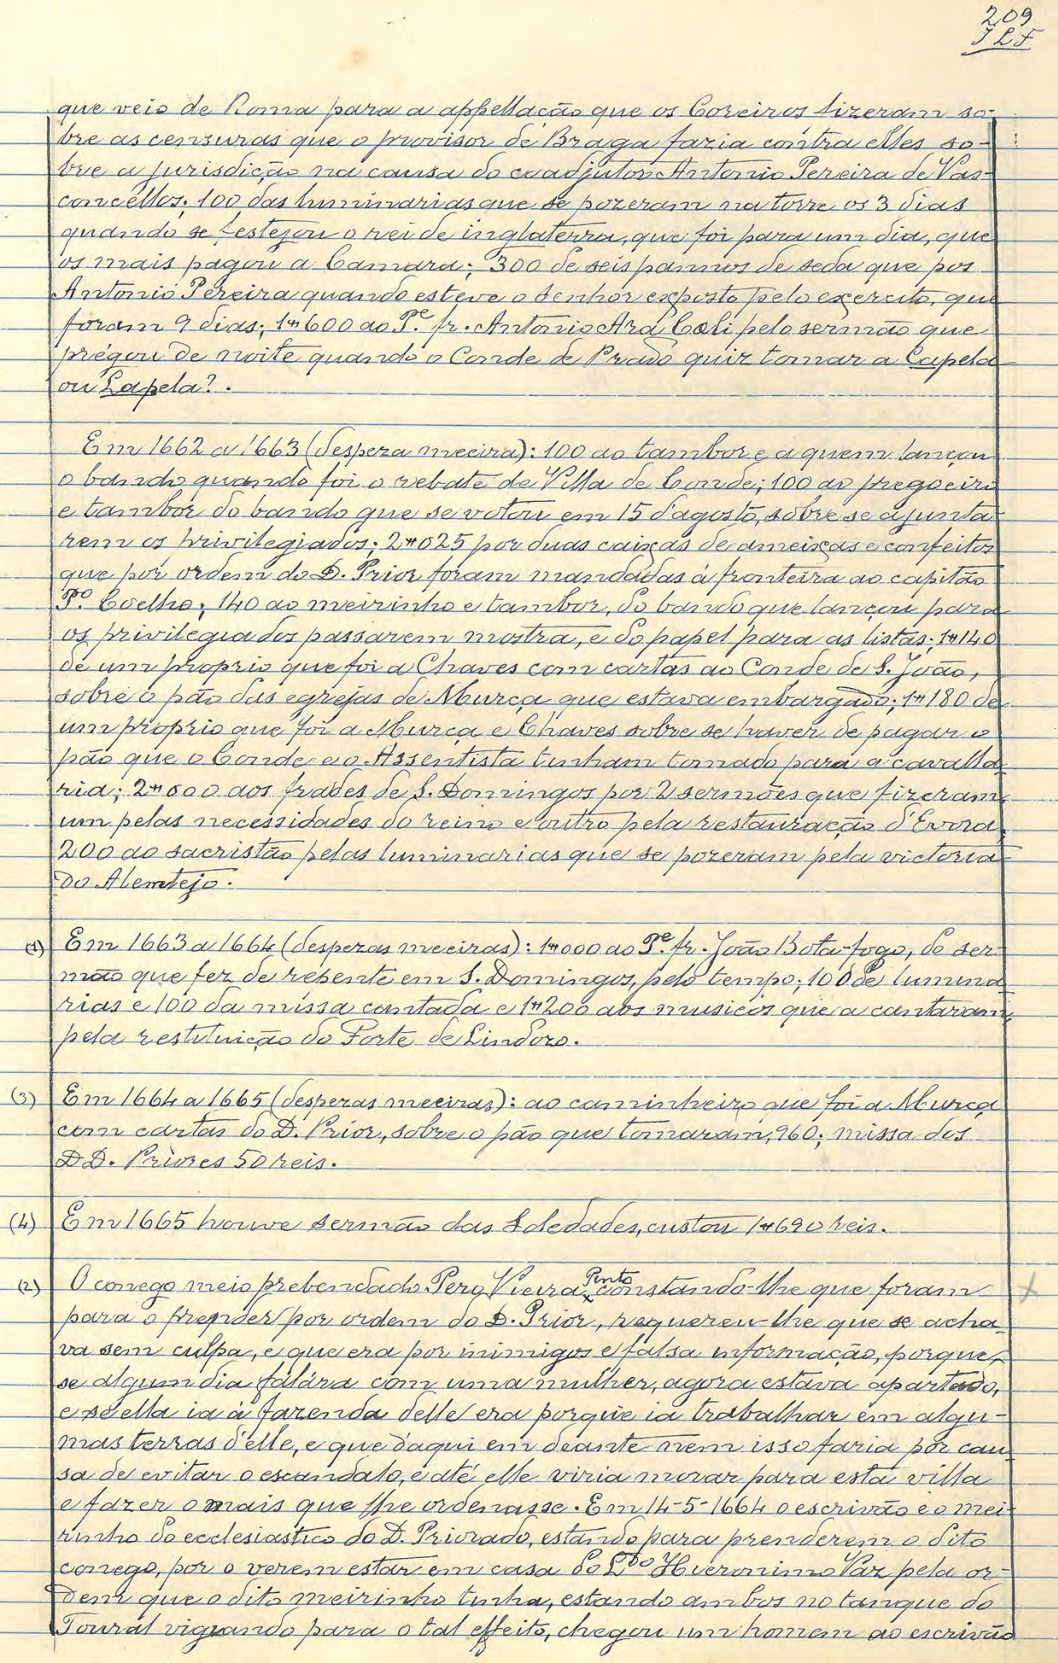 209
JLF
que veio de Roma para a appellação que os Coreiros fizeram so-
bre as censuras que o provisor de Braga fazia contra elles so-
bre a jurisdicção na causa do coadjutor Antonio Pereira de Vas-
concellos; 100 das luminarias que se pozeram na torre os 3 dias
quando se festejou o rei de inglaterra, que foi para um dia, que
os mais pagou a Camara; 300 de seis pannos de seda que pos
Antonio Pereira quando esteve o Senhor exposto pelo exercito, que
foram 9 dias; 1#600 ao Pe. fr. Antonio Ara Cœli pelo sermão que
prégou de noite quando o Conde de Prado quiz tomar a Capela
ou Lapela?.
Em 1662 a 1663 (despeza meeira): 100 ao tambor e a quem lançou
o bando quando foi o rebate de Villa de Conde; 100 ao pregoeiro
e tambor do bando que se votou em 15 d'agosto, sobre se ajunta-
rem os privilegiados; 2#025 por duas caixas de ameixas e confeitos
que por ordem do D. Prior foram mandadas á fronteira ao capitão
Po. Coelho; 140 ao meirinho e tambor, do bando que lançou para
os privilegiados passarem mostra, e do papel para as listas; 1#140
de um proprio que foi a Chaves com cartas ao Conde de S. João,
sobre o pão das egrejas de Murça que estava embargado; 1#180 de
um proprio que foi a Murça e Chaves sobre se haver de pagar o
pão que o Conde e o Assentista tinham tomado para a cavalla-
ria; 2#000 aos frades de S. Domingos por 2 sermões que fizeram,
um pelas necessidades do reino e outro pela restauração d'Evora;
200 ao sacristão pelas luminarias que se pozeram pela victoria
do Alemtejo.
(1) Em 1663 a 1664 (despezas meeiras): 1#000 ao Pe. fr. João Bota-fogo, do ser-
mão que fez de repente em S. Domingos, pelo tempo; 100 de lumina-
rias e 100 da missa cantada e 1#200 aos musicos que a cantaram,
pela restituição do Forte de Lindozo.
(3) Em 1664 a 1665 (despezas meeiras): ao caminheiro que foi a Murça
com cartas do D. Prior, sobre o pão que tomaram, 960; missa dos
DD. Priores 50 reis.
(4) Em 1665 houve sermão das Soledades, custou 1#690 reis.
(2) O conego meio prebendado Pero Vieira Pinto constando-lhe que foram
para o prender por ordem do D. Prior, requereu-lhe que se acha-
va sem culpa, e que era por inimigos e falsa informação, porque,
se algum dia fálára com uma mulher, agora estava apartado,
e se ella ia á fazenda delle era porque ia trabalhar em algu-
mas terras d'elle, e que d'aqui em deante nem isso faria por cau-
sa de evitar o escandalo, e até elle viria morar para esta villa
e fazer o mais que lhe ordenasse. Em 14-5-1664 o escrivão e o mei-
rinho do ecclesiastico do D. Priorado, estando para prenderem o dito
conego, por o verem estar em casa do Ldo Hieronimo Vaz pela or-
dem que o dito meirinho tinha, estando ambos no tanque do
Toural vigiando para o tal effeito, chegou um homem ao escrivão